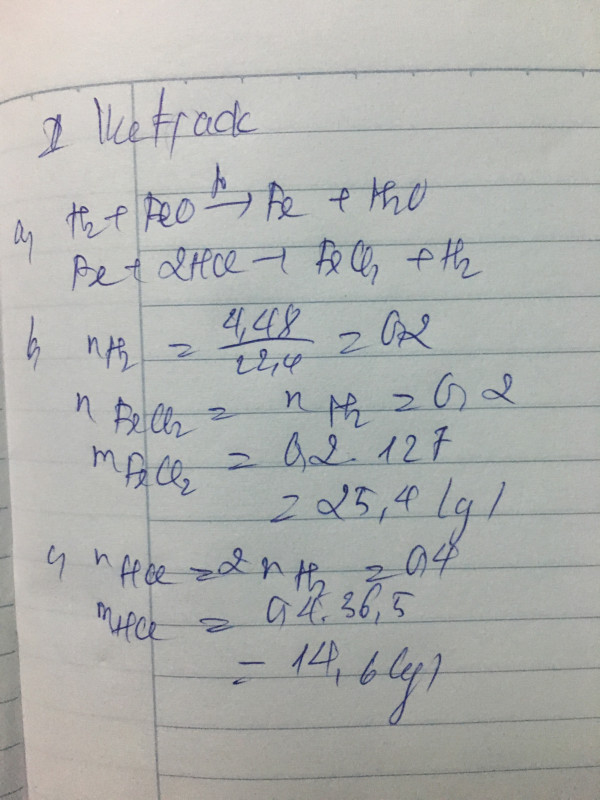 a, H2 + FeO t° → Fe + H2O
Fe + 2HCl → FeCl2 + H2
b, nH2 = 4,48 / 22,4 = 0,2
nFeCl2 = nH2 = 0,2
mFeCl2 = 0,2 . 127
= 25,4 (g)
c, nHCl = 2 nH2 = 0,4
mHCl = 0,4 . 36,5
= 14,6 (g)